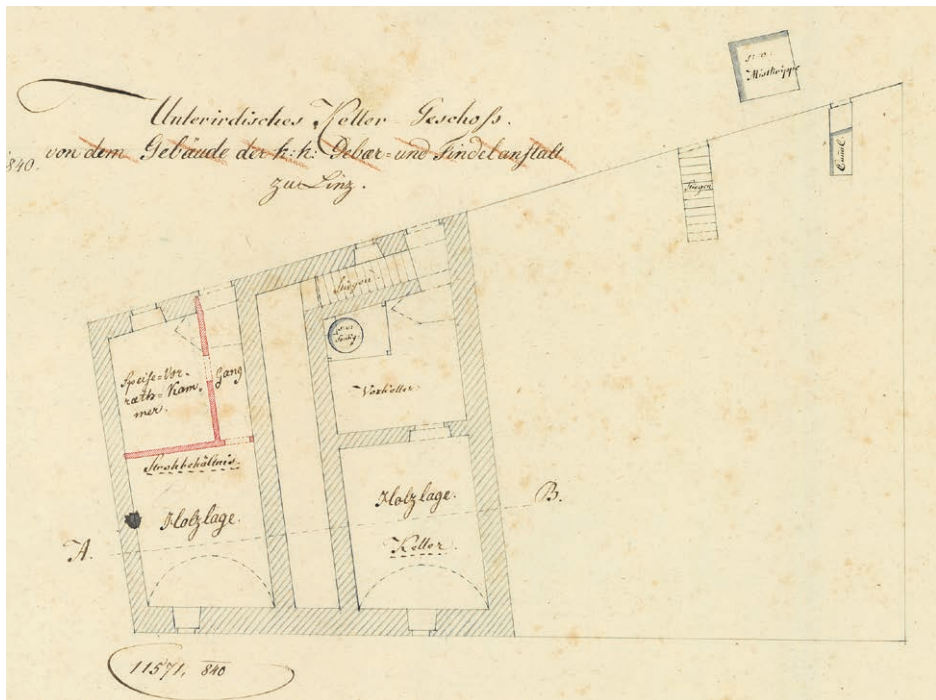 Unterirdisches Keller-Geschoß.
von dem Gebäude der k: k: Gebär- und Findelanstalt
840.
zu Linz.
Mistkrippe
Canal
Stiegen
Stiegen
Speise-Vor-
rath-Kam-
mer.
Gang
Vorkeller
Strohbehältnis.
Holzlage.
Holzlage.
Keller.
A.
B.
11571, 840